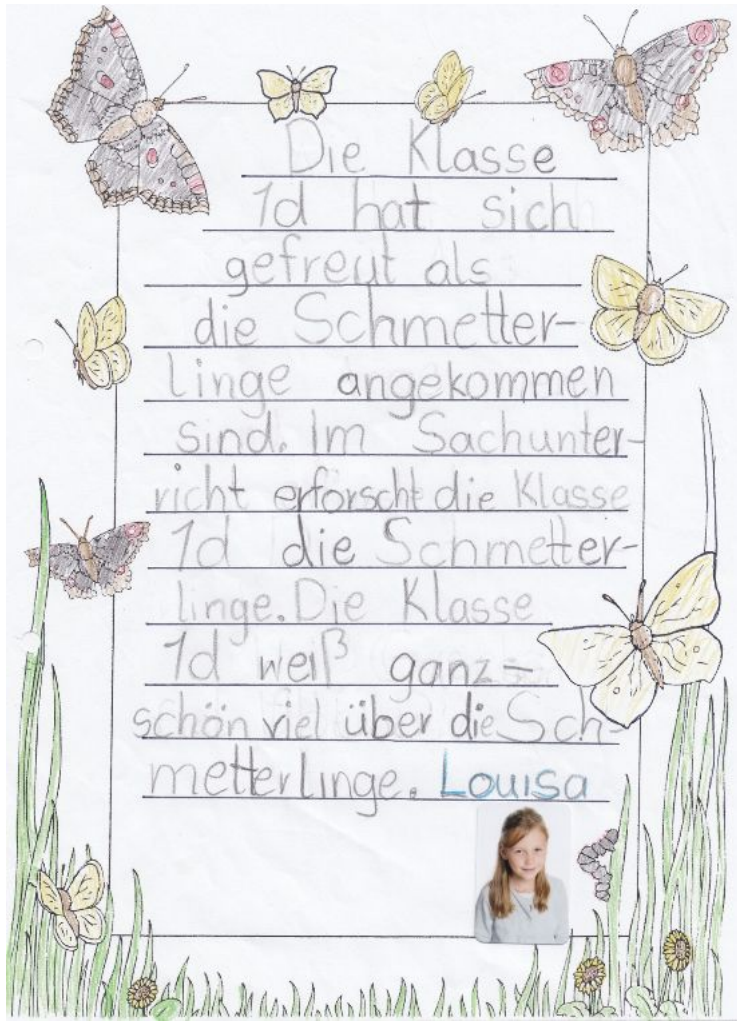 Die Klasse
1d hat sich
gefreut als
die Schmetter-
linge angekommen
sind. Im Sachunter-
richt erforscht die Klasse
1d die Schmetter-
linge. Die Klasse
1d weiß ganz-
schön viel über die Sch-
metterlinge. Louisa